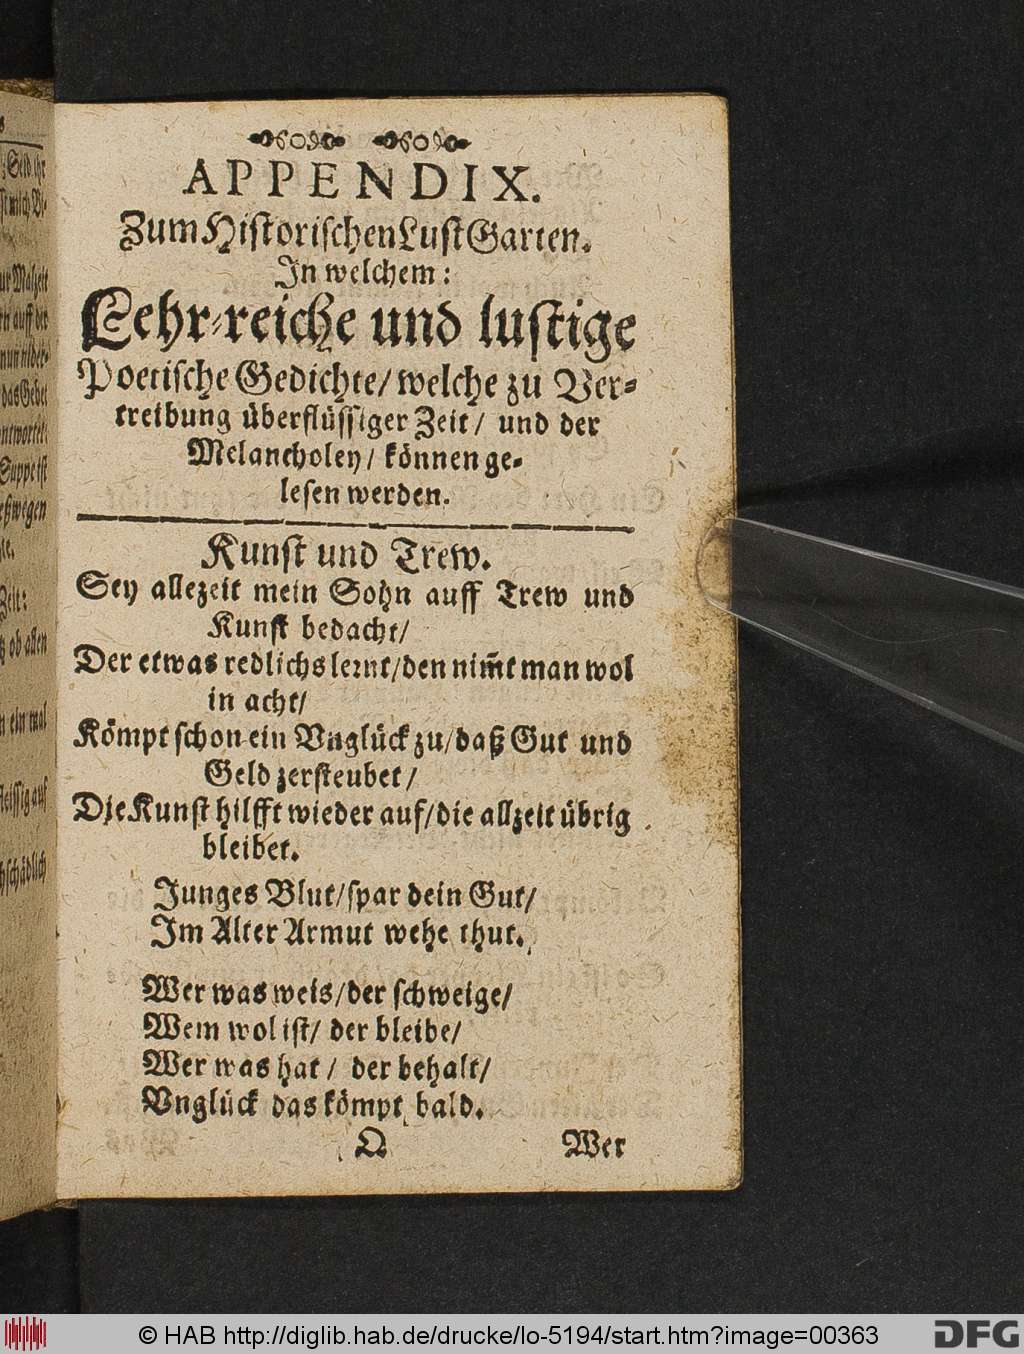 APPENDIX.
Zum Historischen Lust Garten.
In welchem:
Lehr-reiche und lustige
Poetische Gedichte/ welche zu Ver-
treibung überflüssiger Zeit/ und der
Melancholey/ können ge-
lesen werden.
Kunst und Trew.
Sey allezeit mein Sohn auff Trew und
Kunst bedacht/
Der etwas redlichs lernt/ den nim̃t man wol
in acht/
Kömpt schon ein Vnglück zu/ daß Gut und
Geld zersteubet/
Die Kunst hilfft wieder auf/ die allzeit übrig
bleibet.
Junges Blut/ spar dein Gut/
Im Alter Armut wehe thut.
Wer was weis/ der schweige/
Wem wol ist/ der bleibe/
Wer was hat/ der behalt/
Vnglück das kömpt bald.
Q
Wer
© HAB http://diglib.hab.de/drucke/lo-5194/start.htm?image=00363
DFG